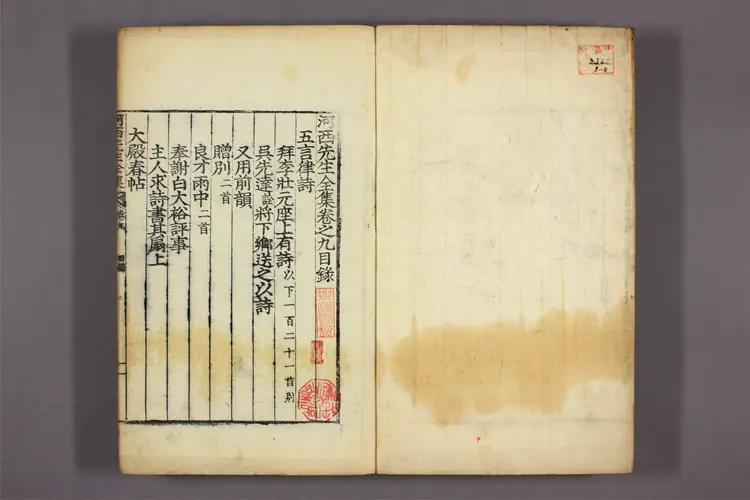 河西先生全集卷之九目錄
五言律詩
拜李壯元座上有詩以下一百二十一首別
吳先達謙將下鄉送之以詩
又用前韻
贈別二首
良才雨中二首
奉謝白大裕評事
主人求詩書其扇上
大殿春帖